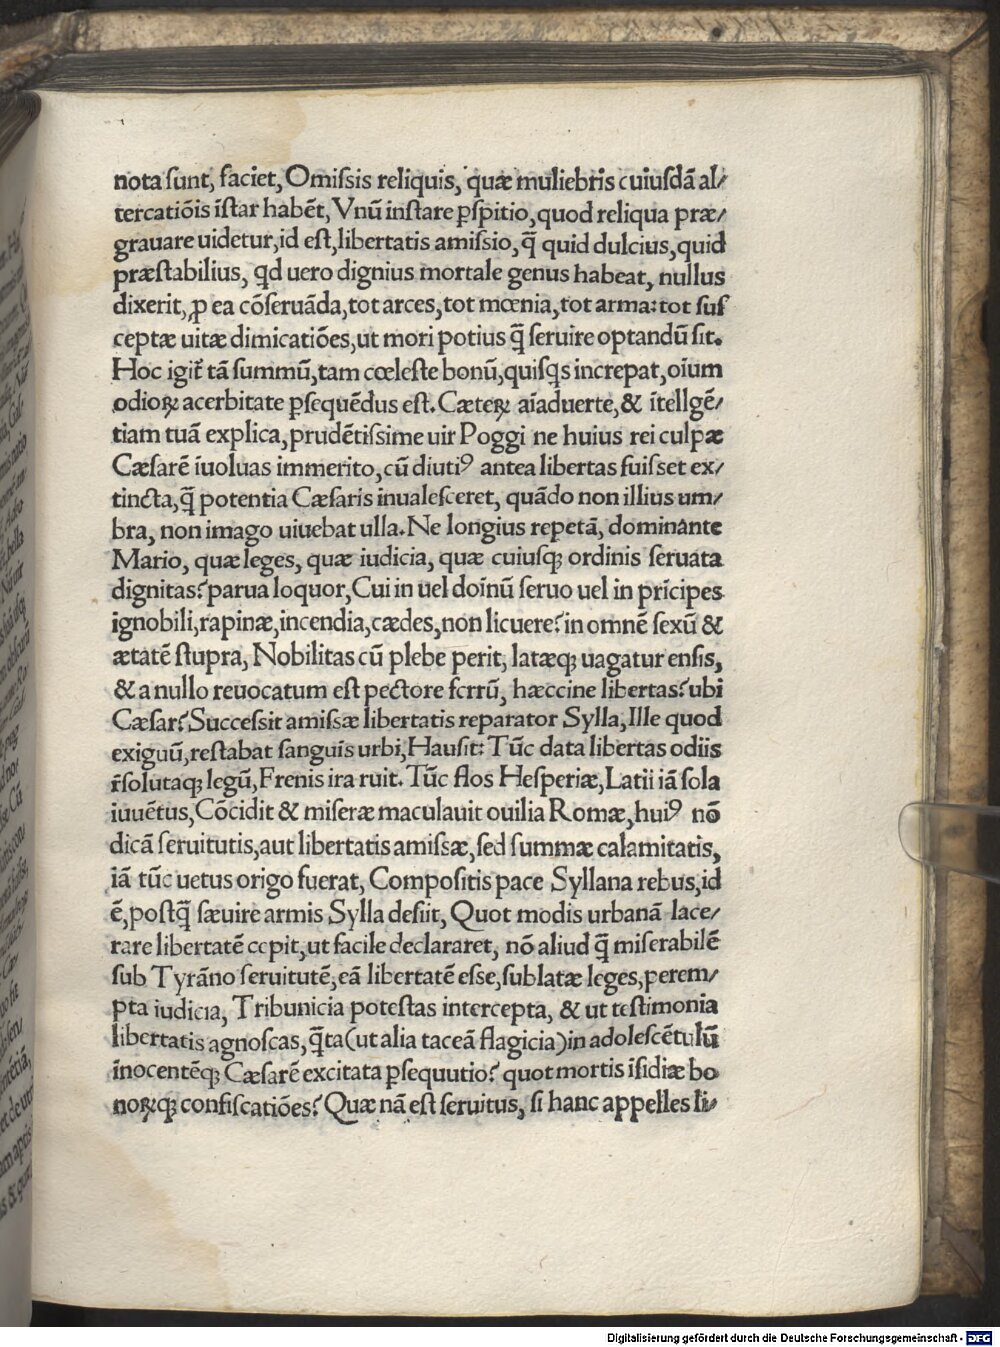 nota ſunt, faciet, Omiſsis reliquis, quæ muliebris cuiuſdā al⸗
tercatiōis īſtar habēt, Vnū inſtare ꝑſpitio, quod reliqua præ⸗
grauare uidetur, id eſt, libertatis amiſsio, q̄ quid dulcius, quid
præſtabilius, qd uero dignius mortale genus habeat, nullus
dixerit, ꝓ ea cōſeruāda, tot arces, tot mœnia, tot arma: tot ſuſ
ceptæ uitæ dimicatiōes, ut mori potius q̄ ſeruire optandū ſit.
Hoc igit̄ tā ſummū, tam cœleſte bonū, quiſqs increpat, oīum
odioꝝ acerbitate ꝑſequēdus eſt. Cæteꝝ aīaduerte, & ītellgē⸗
tiam tuā explica, prudētiſsime uir Poggi ne huius rei culpæ
Cæſarē īuoluas immerito, cū diutiꝰ antea libertas fuiſset ex⸗
tincta, q̄ potentia Cæſaris inualeſceret, quādo non illius um⸗
bra, non imago uiuebat ulla. Ne longius repetā, dominante
Mario, quæ leges, quæ iudicia, quæ cuiuſqꝫ ordinis ſeruata
dignitas? parua loquor, Cui in uel doīnū ſeruo uel in prīcipes
ignobili, rapinæ, incendia, cædes, non licuere? in omnē ſexū &
ætatē ſtupra, Nobilitas cū plebe perit, latæqꝫ uagatur enſis,
& a nullo reuocatum eſt pectore ferrū, hæccine libertas? ubi
Cæſar? Succeſsit amiſsæ libertatis reparator Sylla, Ille quod
exiguū, reſtabat ſanguīs urbi, Hauſit: Tūc data libertas odiis
r̄ſolutaqꝫ legū, Frenis ira ruit. Tūc flos Heſperiæ, Latii iā ſola
iuuētus, Cōcidit & miſeræ maculauit ouilia Romæ, huiꝰ nō
dicā ſeruitutis, aut libertatis amiſsæ, ſed ſummæ calamitatis,
iā tūc uetus origo fuerat, Compoſitis pace Syllana rebus, id
ē, poſtq̄ ſæuire armis Sylla deſiit, Quot modis urbanā lace⸗
rare libertatē cepit, ut facile declararet, nō aliud q̄ miſerabilē
ſub Tyrāno ſeruitutē, eā libertatē eſſe, ſublatæ leges, perem⸗
pta iudicia, Tribunicia poteſtas intercepta, & ut teſtimonia
libertatis agnoſcas, q̄ta (ut alia taceā flagicia) in adoleſcētulū
īnocentēqꝫ Cæſarē excitata ꝑſequutio? quot mortis īſidiæ bo
noꝝqꝫ confiſcatiōes? Quæ nā eſt ſeruitus, ſi hanc appelles li⸗
Digitalisierung gefördert durch die Deutsche Forschungsgemeinschaft - DFG